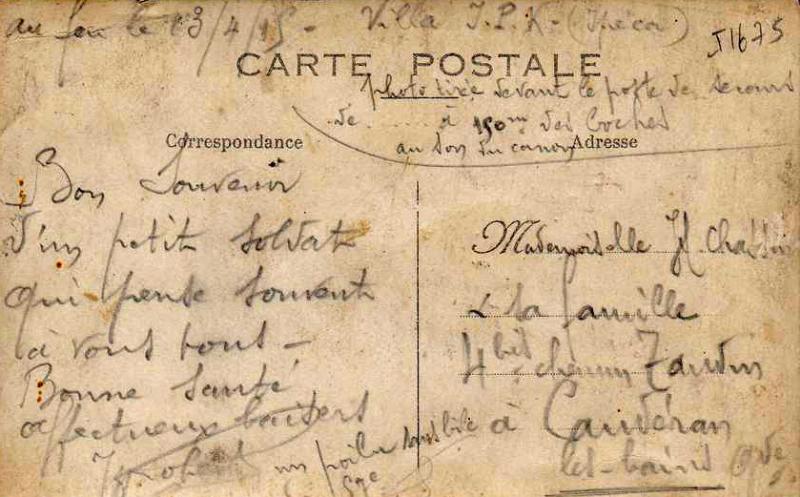 au feu le 13/4/15 - Villa J.P.K-
J1675
CARTE POSTALE
photo tirée devant le poste de secours
de ........ à 150m des Boches
au son du canon
Correspondance
Adresse
Bon Souvenir
d'un petit soldat
qui pense souvent
à vous tous -
Bonne santé
affectueux baisers
un poilu sans bile
Mademoiselle
& sa famille
4bis chemin
à Caudéran
les-bains